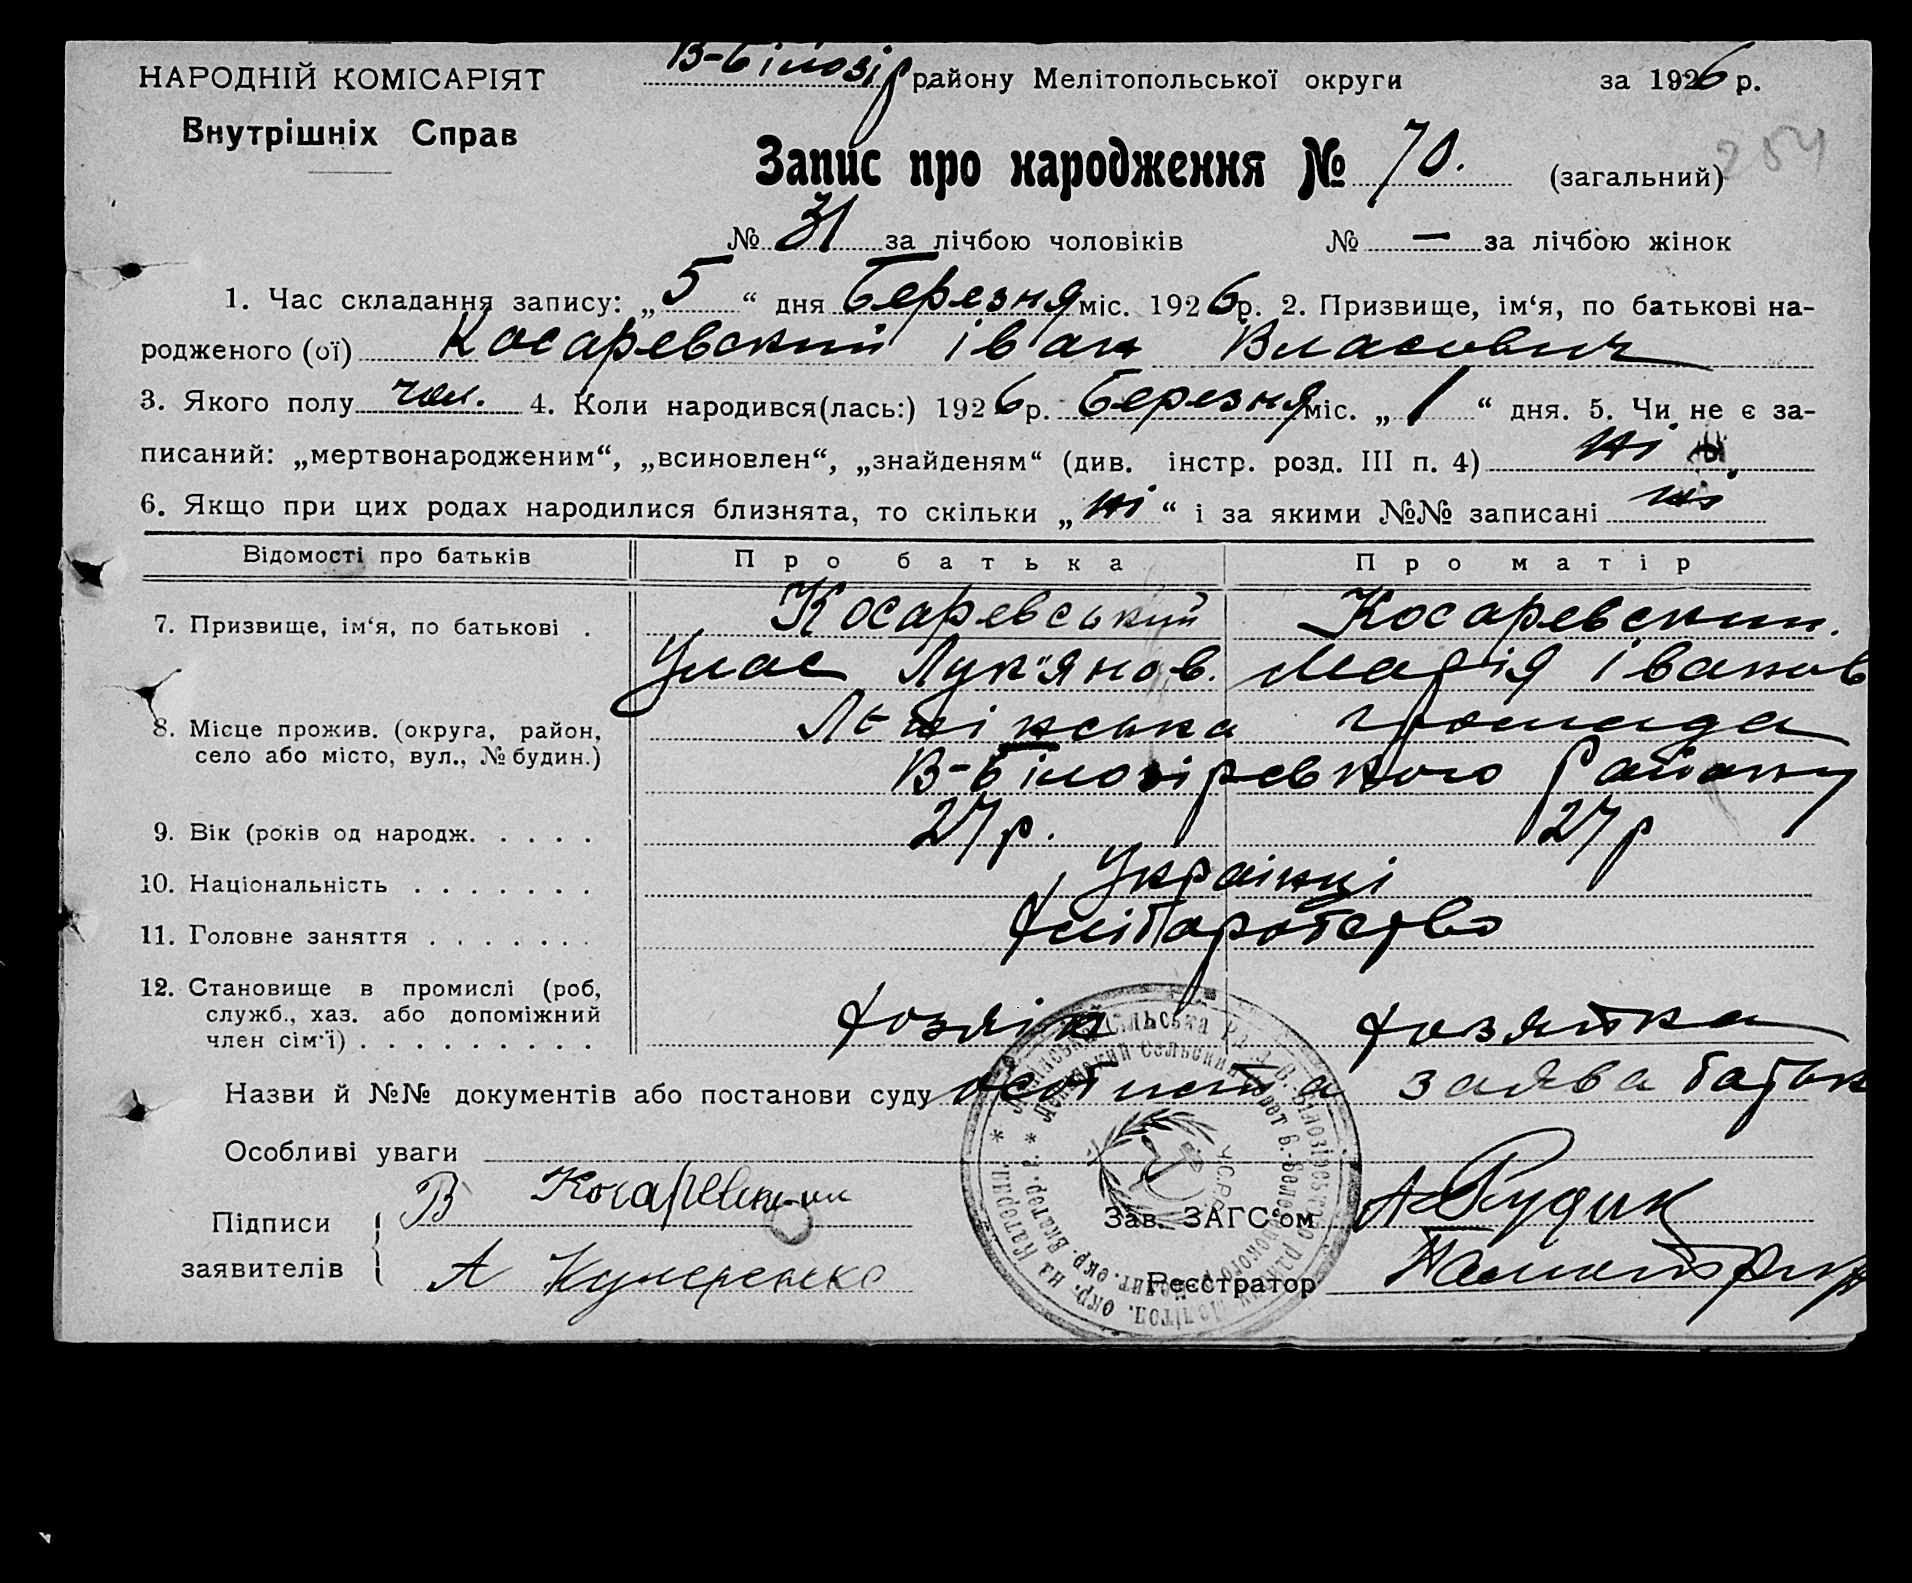 НАРОДНІЙ КОМІСАРІЯТ
Внутрішніх Справ
В-Білозір району Мелітопольської округи за 1926 р.
Запис про народження № 70. (загальний)
254
№ 31 за лічбою чоловіків № — за лічбою жінок
1. Час складання запису: „5“ дня Березня міс. 1926 р. 2. Призвище, ім‘я, по батькові на-
родженого (ої) Косаревский Іван Власович
3. Якого полу чол. 4. Коли народився(лась:) 1926 р. Березня міс. „1“ дня. 5. Чи не є за-
писаний: „мертвонародженим“, „всиновлен“, „знайденям“ (див. інстр. розд. III п. 4) ні
6. Якщо при цих родах народилися близнята, то скільки „ні“ і за якими №№ записані ні
Відомості про батьків Про батька Про матір
7. Призвище, ім‘я, по батькові . Косаревський Косаревский.
Улас Лук'янов. Марія Іванов
8. Місце прожив. (округа, район, село або місто, вул., № будин.) Ленінська громада
В-Білозірсвкого Району
9. Вік (років од народж. . . . . 27 р. 27 р
10. Національність . . . . . . . Українці
11. Головне заняття . . . . . . . Хліборобство
12. Становище в промислі (роб, служб., хаз. або допоміжний член сім‘ї) . . . . . . . . . Хозяін Хозяйка
Назви й №№ документів або постанови суду особиста заява батьк
Особливі уваги
Підписи заявителів
В Косаревский
А Кучеренко
Зав. ЗАГС‘ом А Рудик
Реєстратор
У.С.Р.Р.